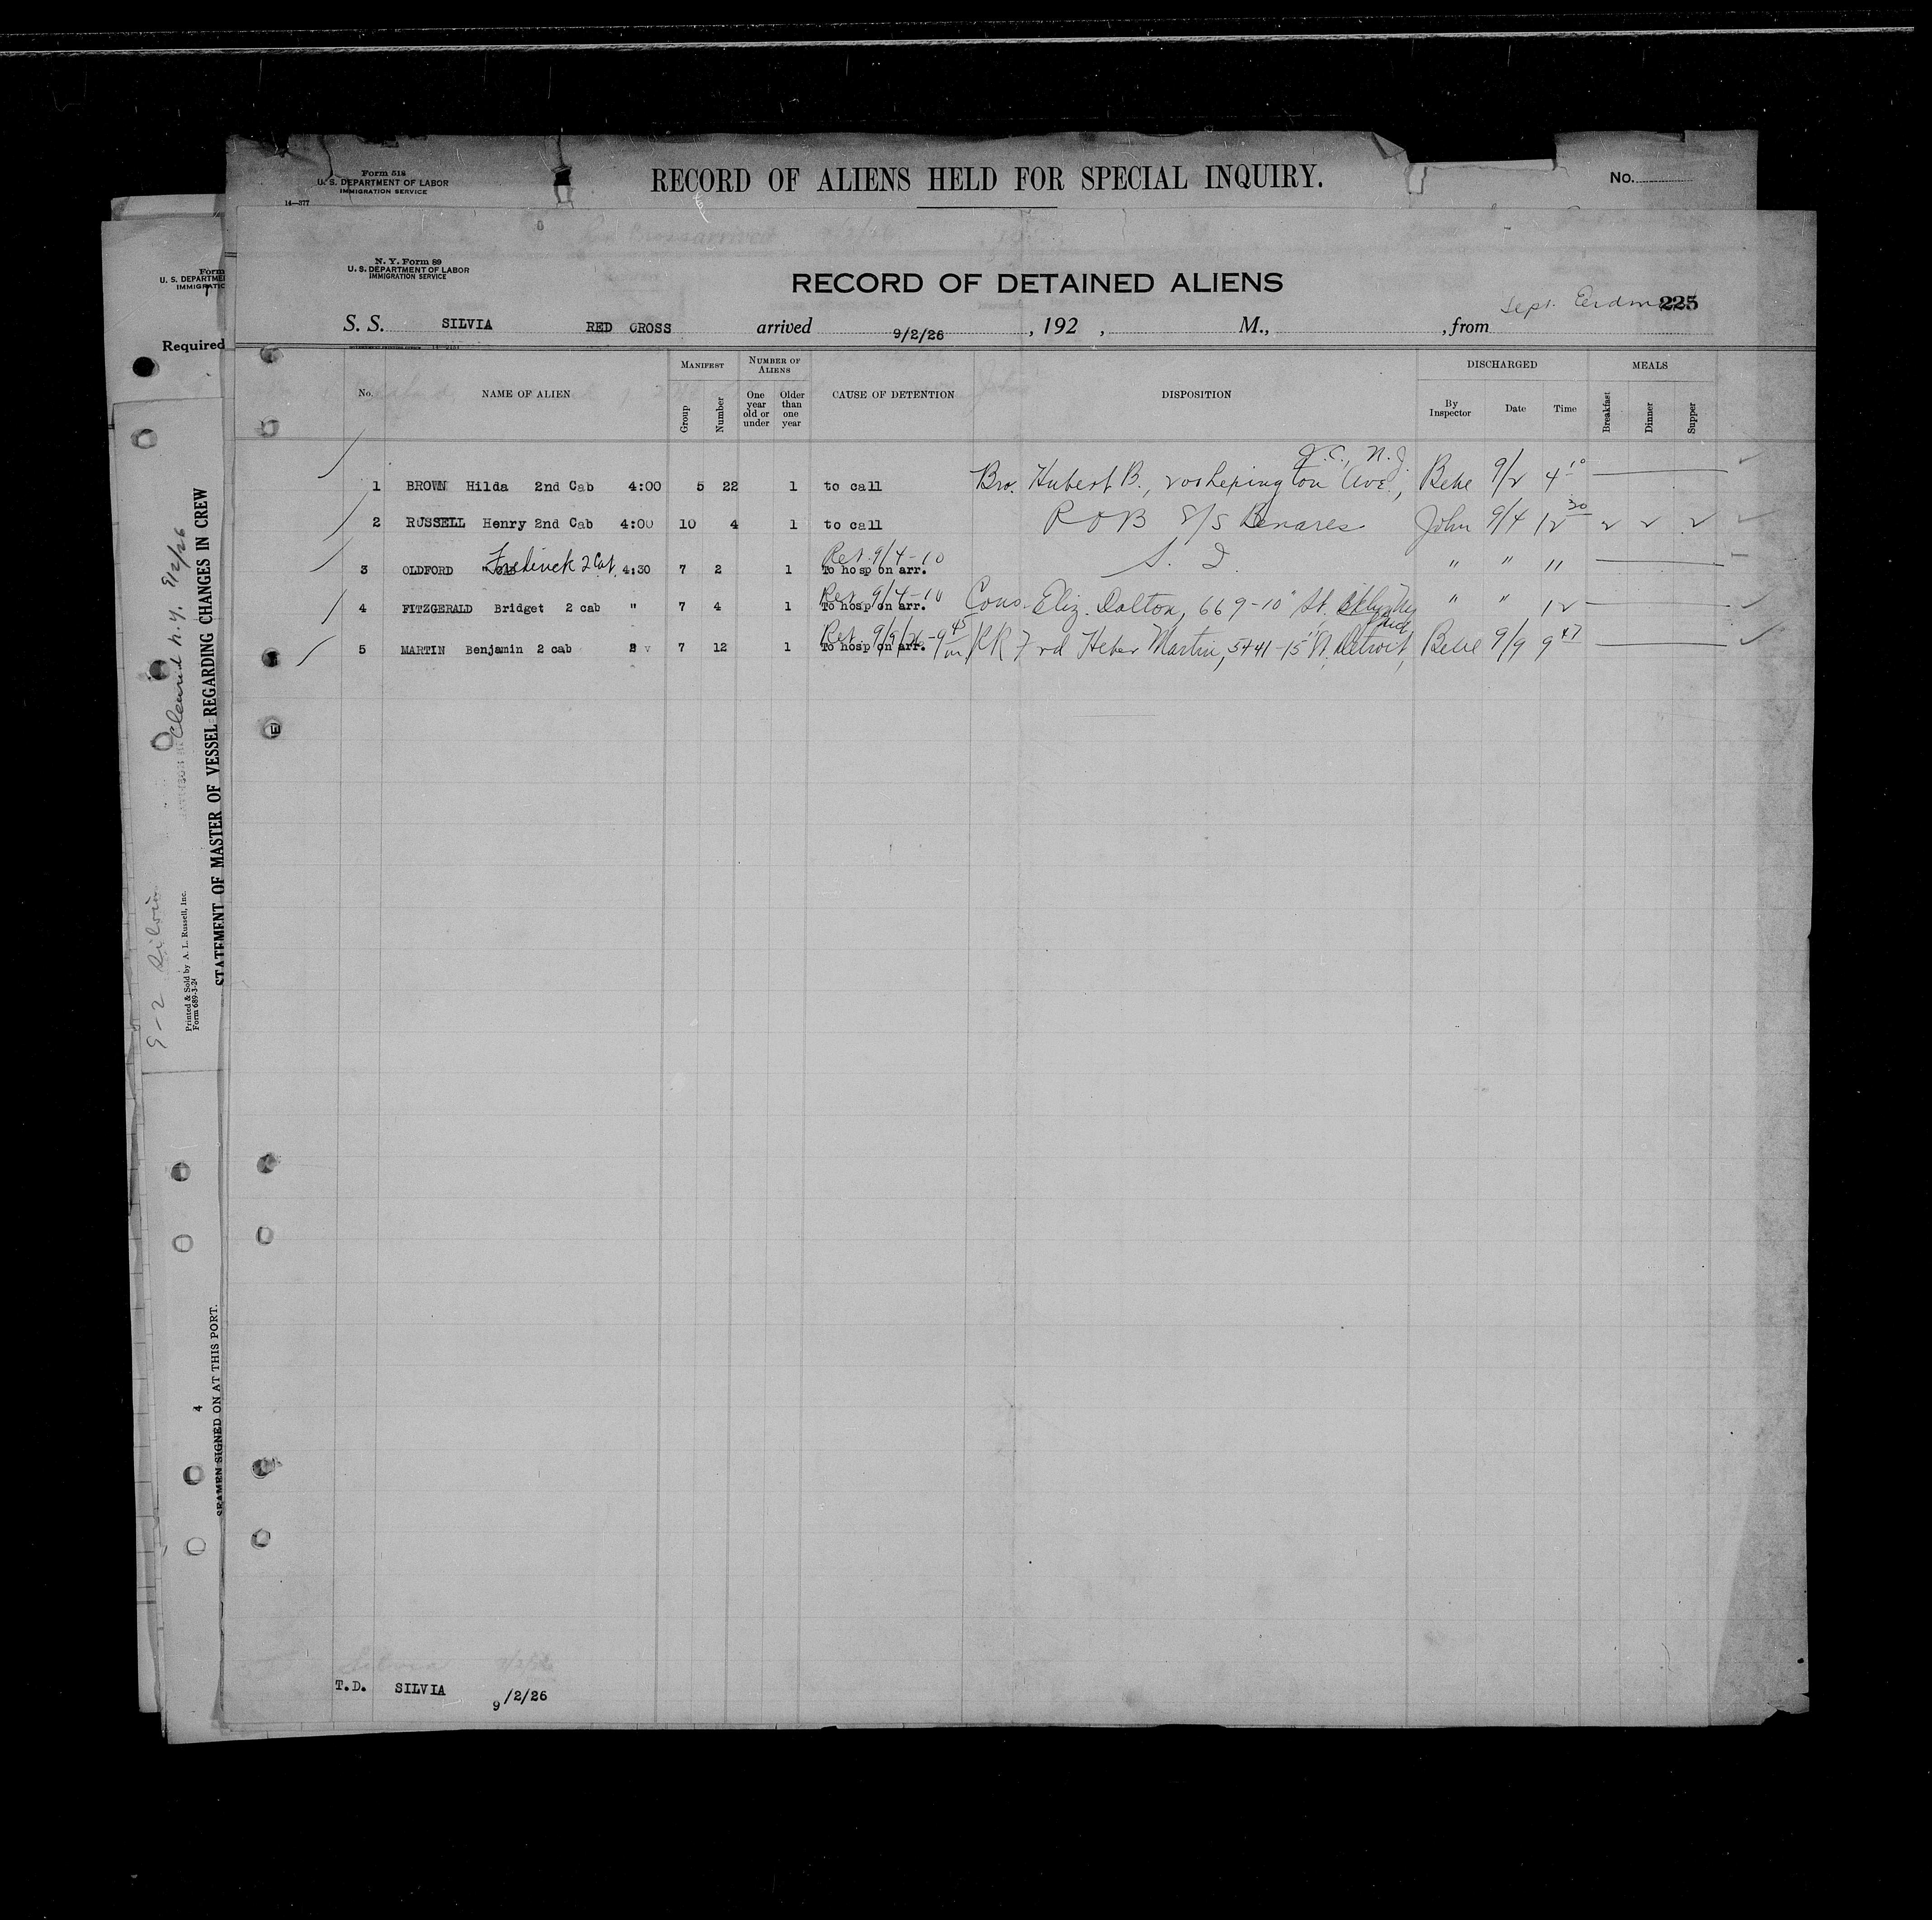 Form 518
U. S. DEPARTMENT OF LABOR
IMMIGRATION SERVICE
14—377
RECORD OF ALIENS HELD FOR SPECIAL INQUIRY.
No.
N. Y. Form 89
U. S. DEPARTMENT OF LABOR
IMMIGRATION SERVICE
RECORD OF DETAINED ALIENS
Sept. 225
S. S. SILVIA RED CROSS arrived 9/2/26, 192 , M., , from
No. NAME OF ALIEN MANIFEST NUMBER OF ALIENS CAUSE OF DETENTION DISPOSITION DISCHARGED MEALS
Group Number One year old or under Older than one year By Inspector Date Time Breakfast Dinner Supper
J.C., N.J.
1 BROWN Hilda 2nd Cab 4:00 5 22 1 to call Bro. Hubert B., Ave., 9/2 4 10
2 RUSSELL Henry 2nd Cab 4:00 10 4 1 to call R O B S/S Benares John 9/4 12 30
Ret. 9/4-10
3 OLDFORD Frederick 2 Cab 4:30 7 2 1 To hosp on arr. S. I. " " "
Ret. 9/4-10
4 FITZGERALD Bridget 2 cab " 7 4 1 To hosp on arr. Cous. Eliz. Dalton, 669-10" St. " " 12
Ret. 9/9/26-9 45
5 MARTIN Benjamin 2 cab 7 12 1 To hosp on arr. RR Frd Heber Martin, 5441-15" St, Detroit, 9/9 9 47
T.D. SILVIA 9/2/26
Form
U. S. DEPARTME
IMMIGRATIO
Required
Cleared N.Y. 9/2/26
STATEMENT OF MASTER OF VESSEL REGARDING CHANGES IN CREW
9-2 Silvia
Printed & Sold by A. L. Russell, Inc.
Form 689-3-24
4
SEAMEN SIGNED ON AT THIS PORT.